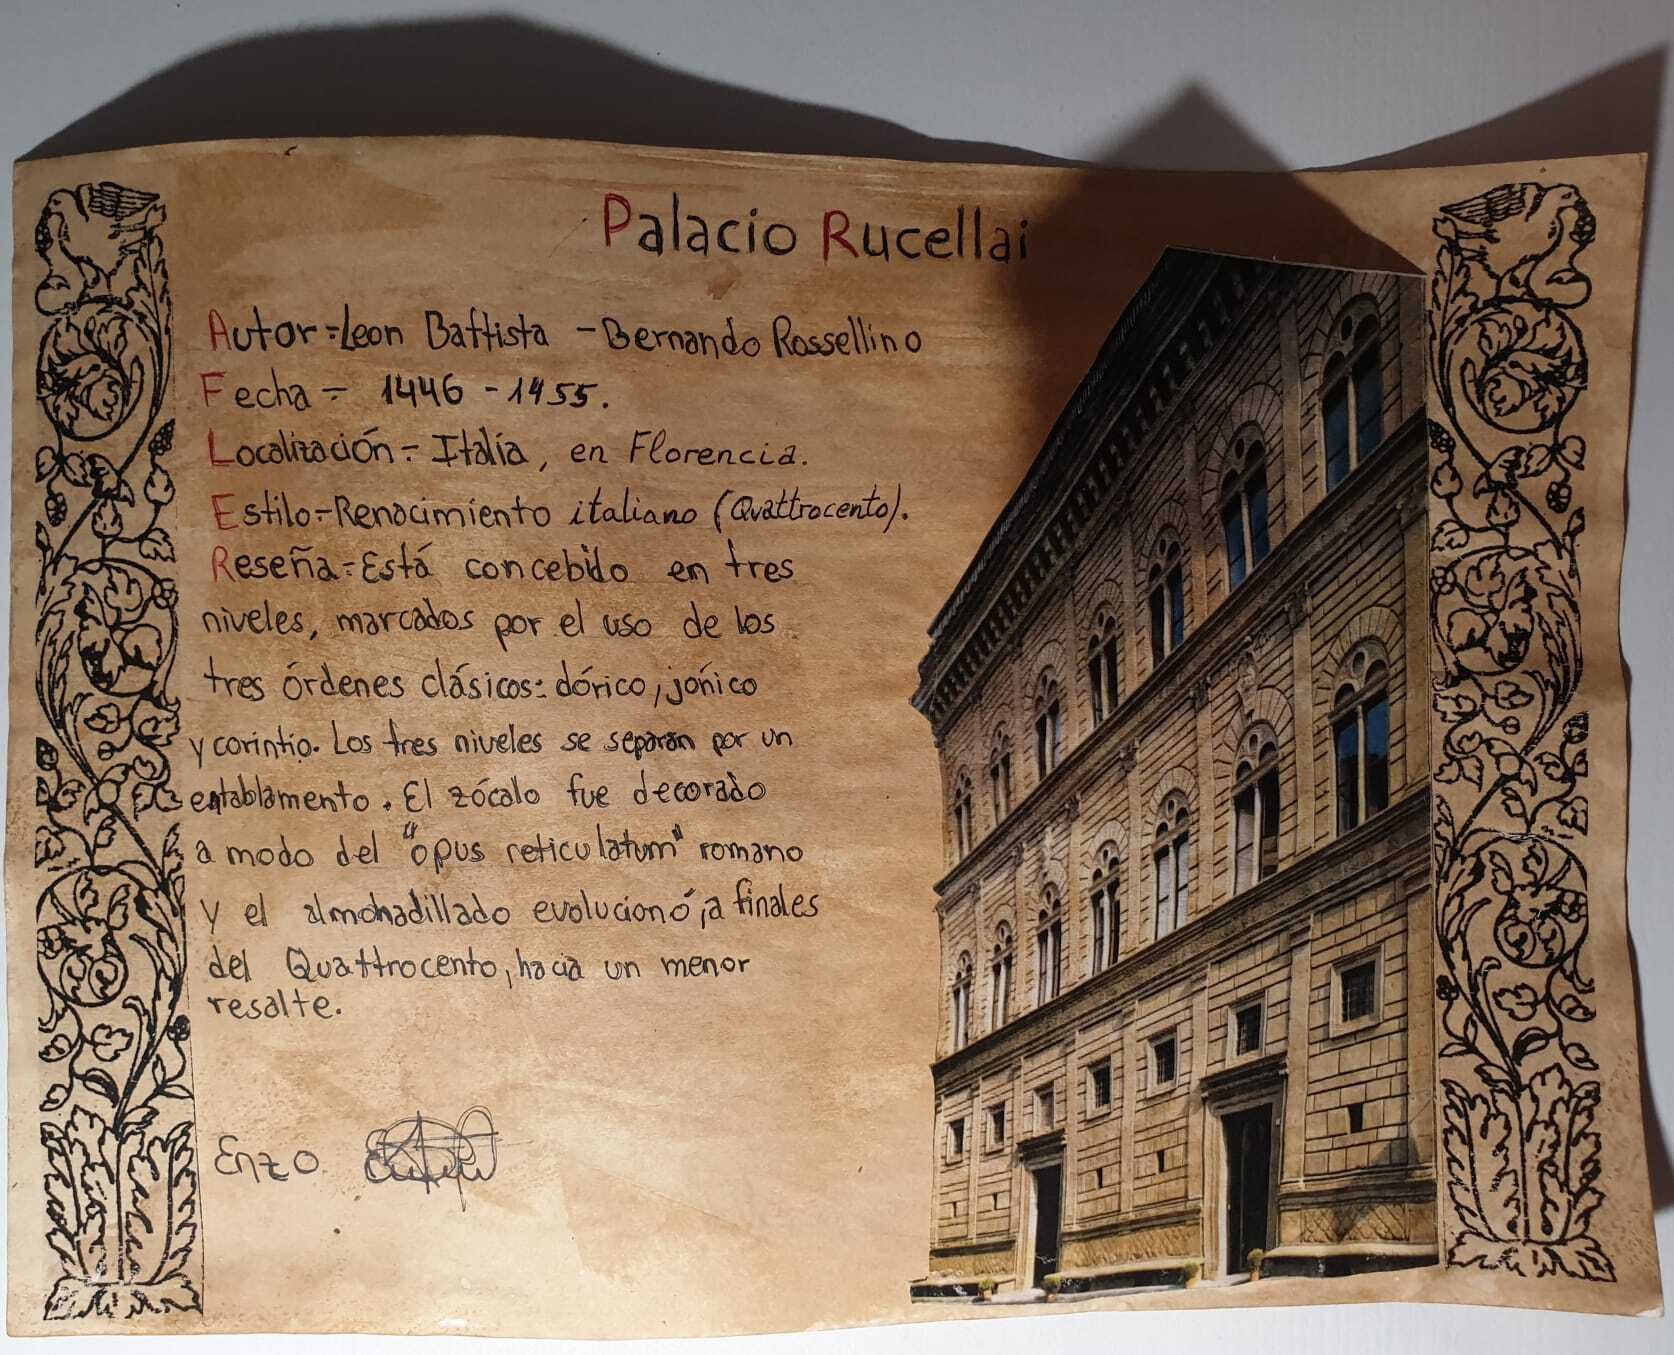 Palacio Rucellai
Autor:-Leon Battista - Bernando Rossellino
Fecha:- 1446 - 1455.
Localización:- Italia, en Florencia.
Estilo:-Renacimiento italiano (Quattrocento).
Reseña:-Está concebido en tres
niveles, marcados por el uso de los
tres órdenes clásicos: dórico, jónico
y corintio. Los tres niveles se separan por un
entablamento. El zócalo fue decorado
a modo del "opus reticulatum" romano
y el almohadillado evolucionó, a finales
del Quattrocento, hacia un menor
resalte.
Enzo